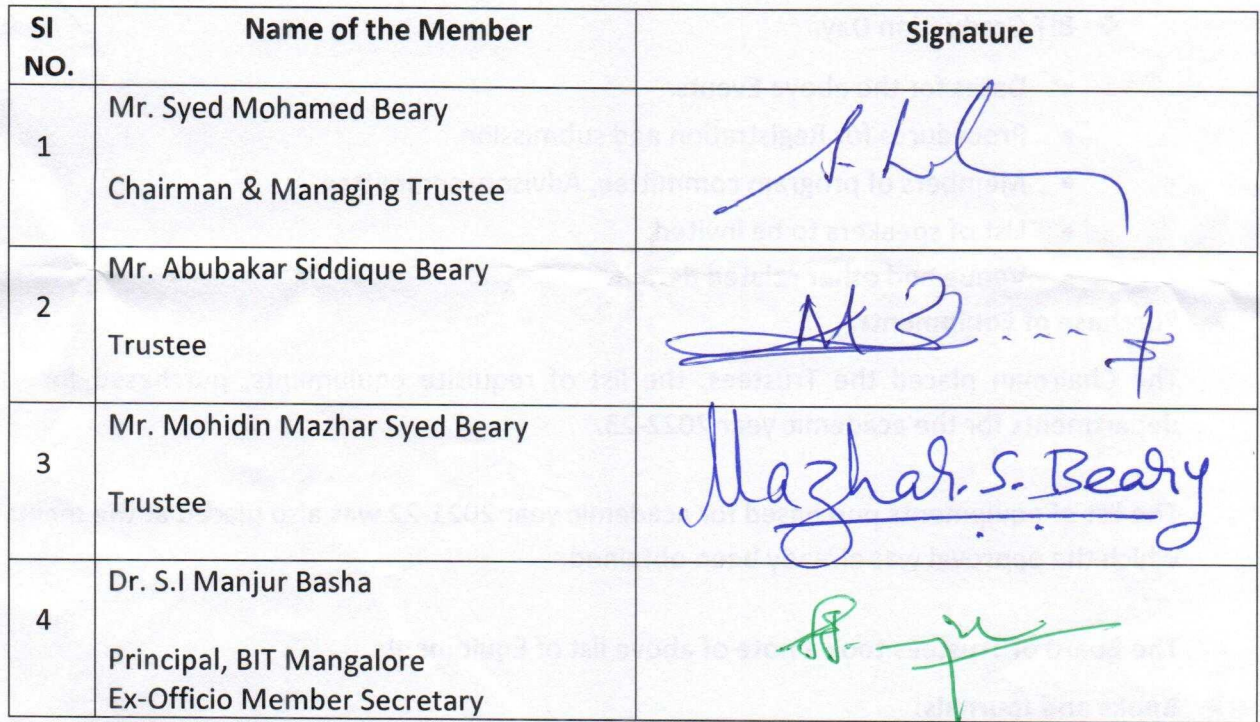 SI NO. Name of the Member Signature
1 Mr. Syed Mohamed Beary
Chairman & Managing Trustee
2 Mr. Abubakar Siddique Beary
Trustee
3 Mr. Mohidin Mazhar Syed Beary
Trustee
Mazhar. S. Beary
4 Dr. S.I Manjur Basha
Principal, BIT Mangalore
Ex-Officio Member Secretary